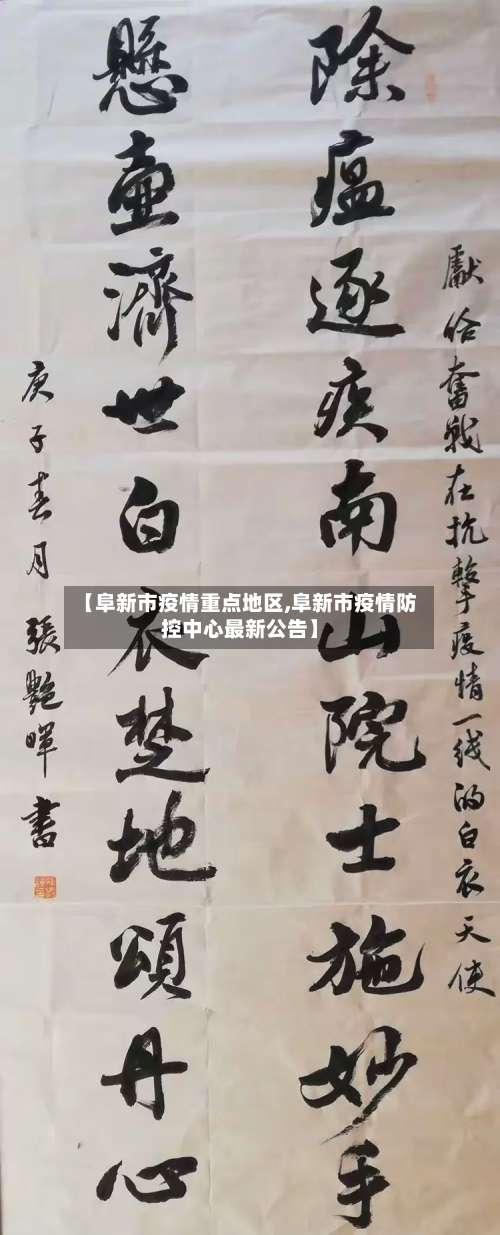 獻给奮戰在抗擊疫情一线的白衣天使
除瘟逐疾南山院士施妙手
懸壺濟世白衣楚地頌丹心
庚子春月 張艷暉書
【阜新市疫情重点地区,阜新市疫情防
控中心最新公告】